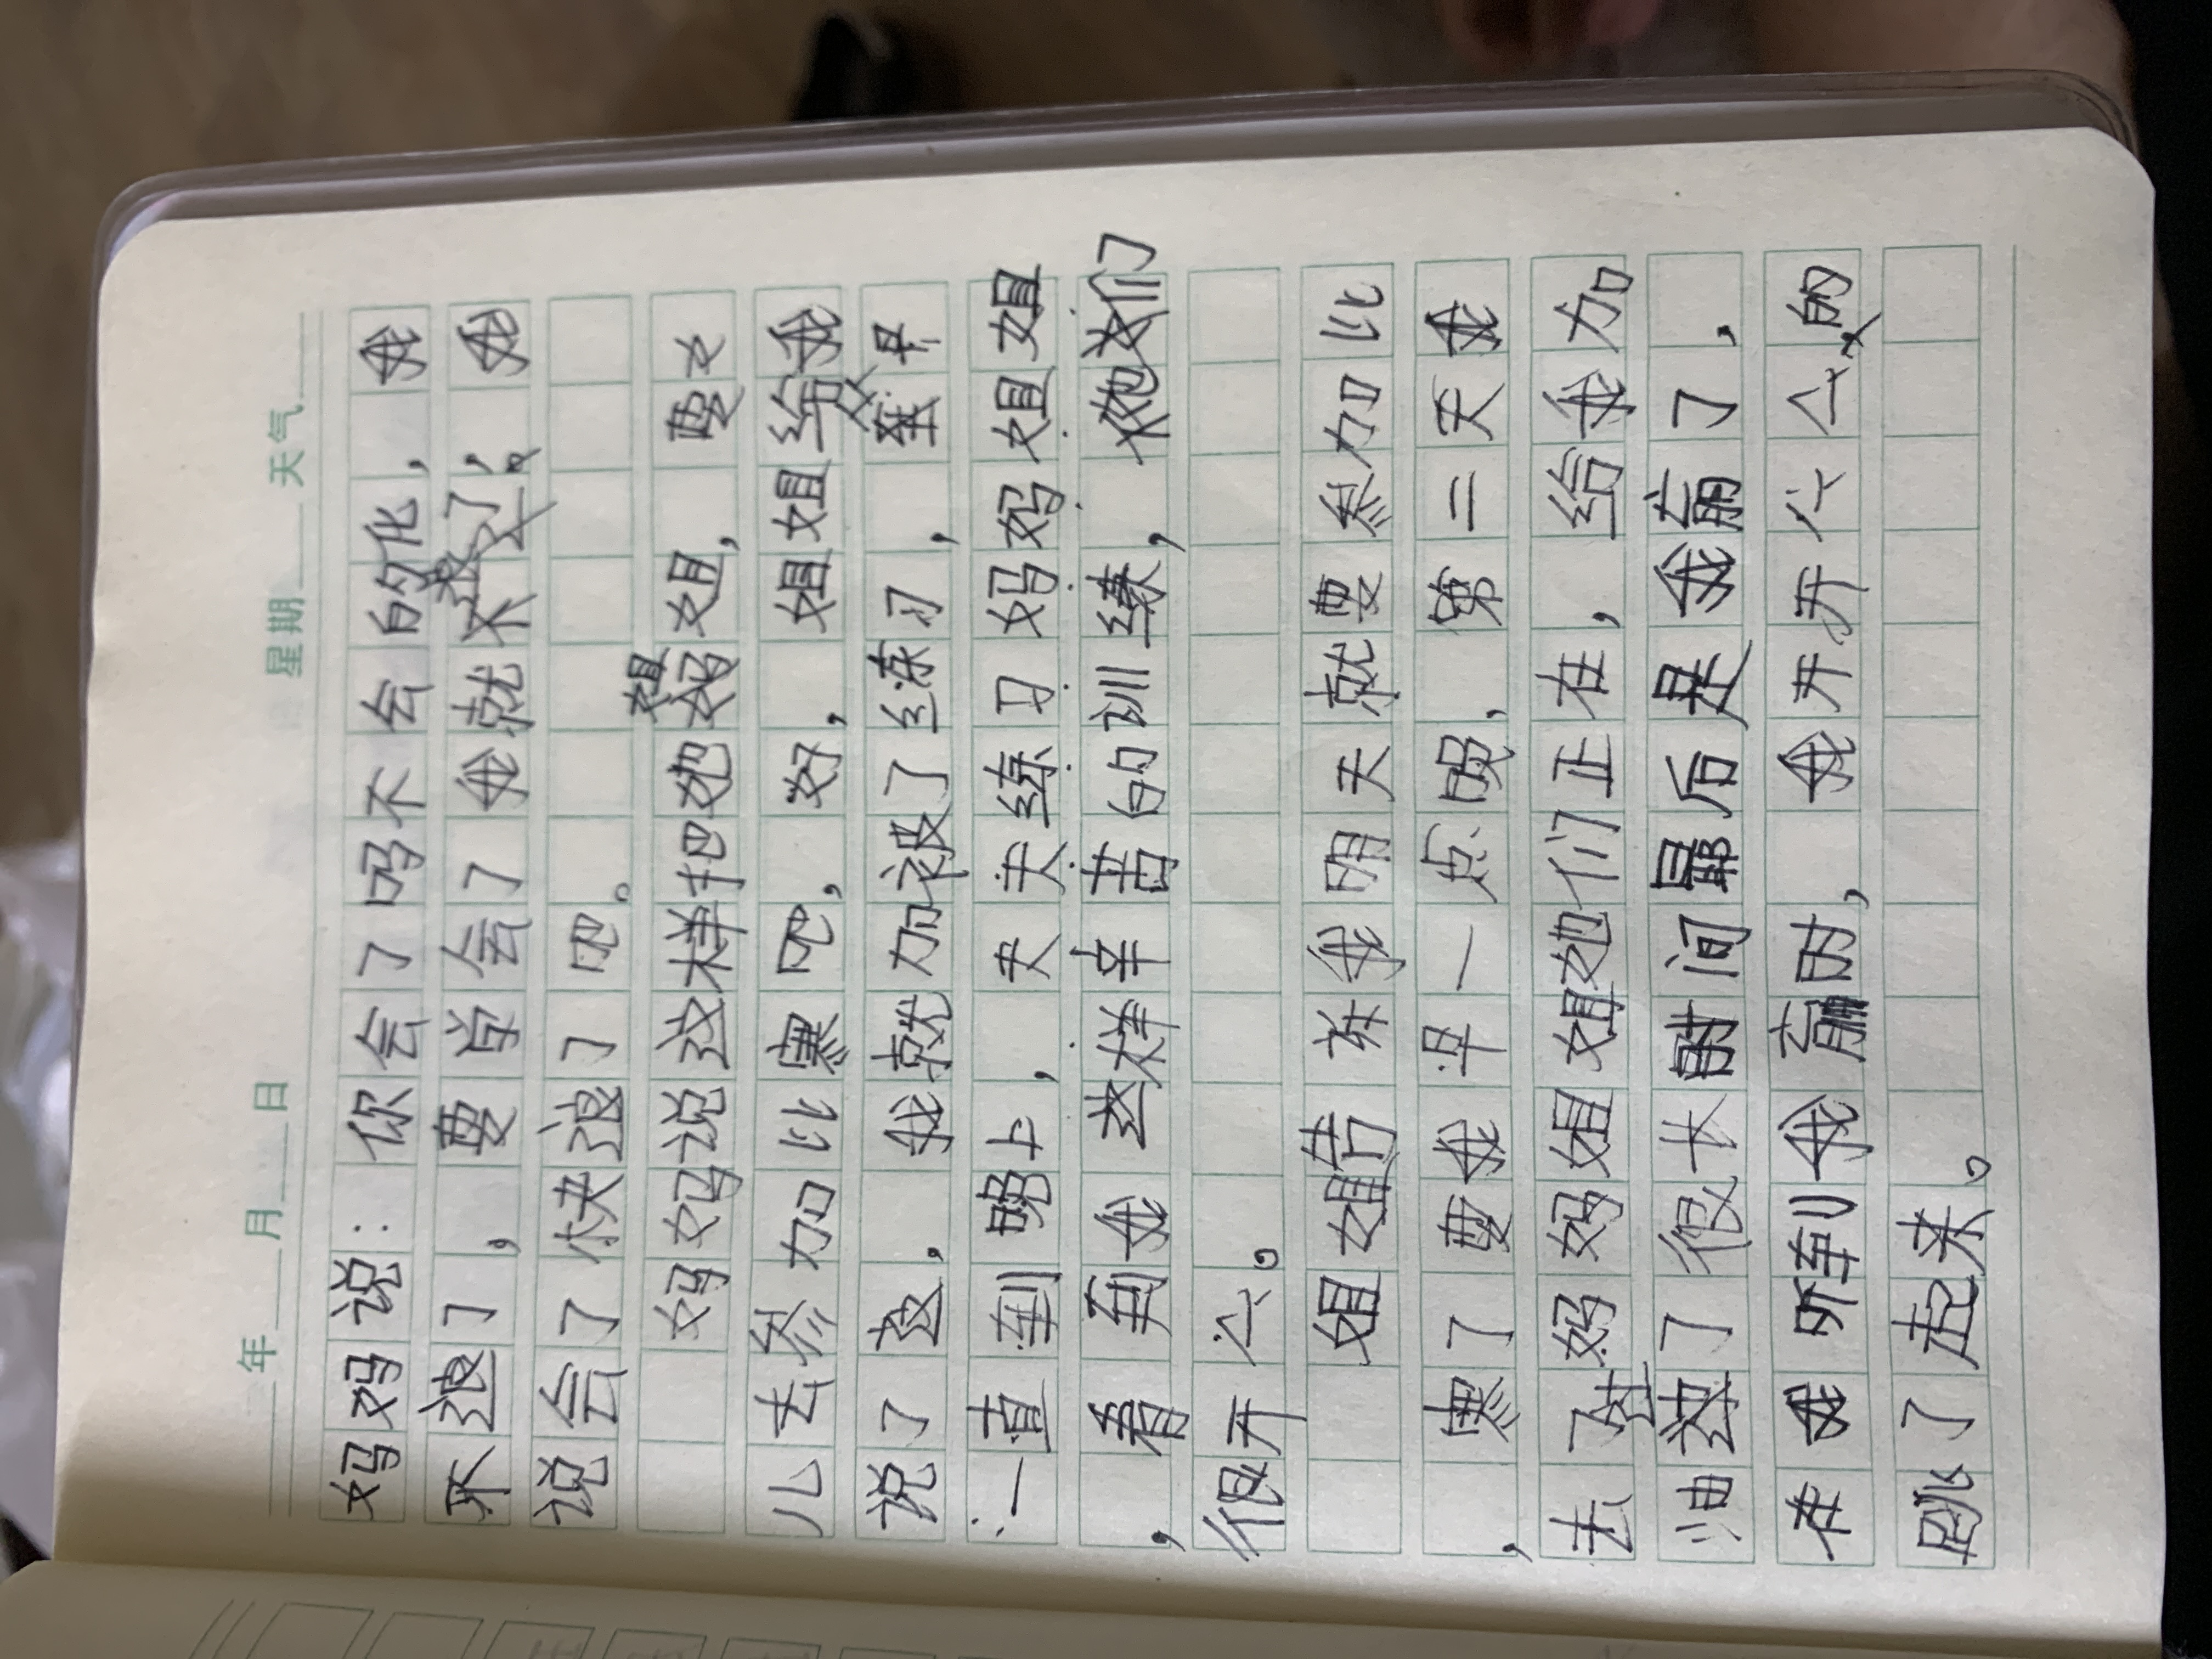 年 月 日 星期 天气
妈妈说:你会了吗不会的化,我
不退了,要学会了我就不了,我
说会了快退了吧。
妈妈说这样把她姐姐,要女
儿去参加比寒吧,好,姐姐给我
说了这,我就加被了练习,早
一直到晚上,天天练习妈妈姐姐
,看到我这样辛苦的训练,她们
很开心。
姐姐告诉我明天就要参加比
寒了要我早一点,第二天我
,去了妈妈姐姐她们正在,给我加
油过了很长时间最后是我了,
在我听到我时,我开开心心的
跳了起来。